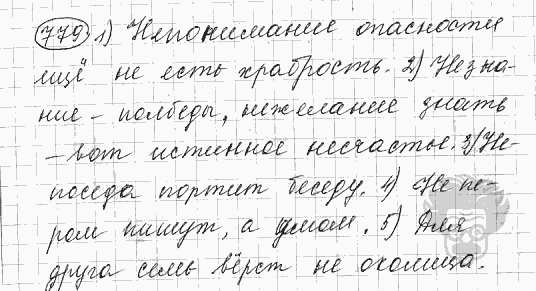 779 1) Непонимание опасности
ещё не есть храбрость. 2) Незна-
ние – полбеды, нежелание знать
– вот истинное несчастье. 3) Не-
поседа портит беседу. 4) Не пе-
ром пишут, а умом. 5) Для
друга семь вёрст не околица.